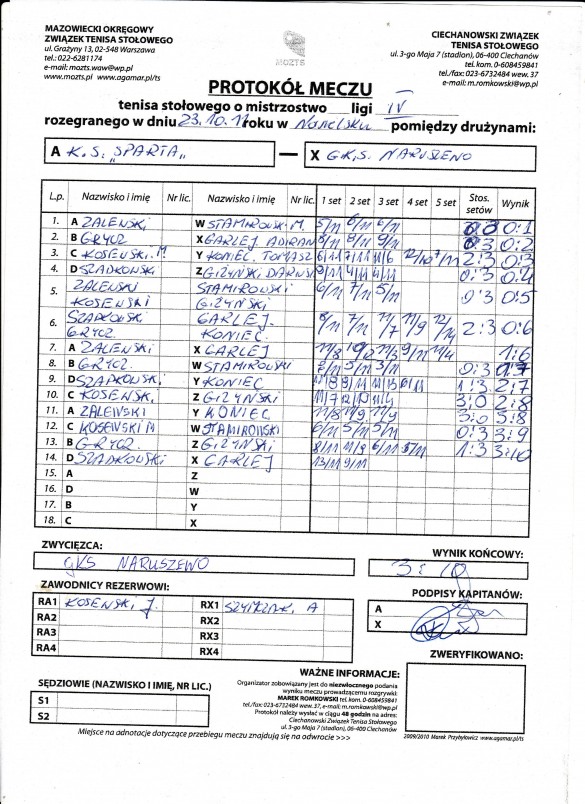 MAZOWIECKI OKRĘGOWY
ZWIĄZEK TENISA STOŁOWEGO
ul. Grażyny 13, 02-548 Warszawa
tel.: 022-6281174
e-mail: mozts.waw@wp.pl
www.mozts.pl www.agamar.pl/ts
MOZTS
CIECHANOWSKI ZWIĄZEK
TENISA STOŁOWEGO
ul. 3-go Maja 7 (stadion), 06-400 Ciechanów
tel. kom. 0-608459841
tel./fax: 023-6732484 wew. 37
e-mail: m.romkowski@wp.pl
PROTOKÓŁ MECZU
tenisa stołowego o mistrzostwo ligi IV
rozegranego w dniu 23.10.11 roku w Nasielsku pomiędzy drużynami:
A K.S. "SPARTA" — X G.K.S. NARUSZEWO
L.p. Nazwisko i imię Nr lic. Nazwisko i imię Nr lic. 1 set 2 set 3 set 4 set 5 set Stos. setów Wynik
1. A ZALEWSKI W STAMIROWSKI M. 5/11 6/11 6/11 0:3 0:1
2. B GRYCZ X GARLEJ ADRIAN 8/11 8/11 9/11 0:3 0:2
3. C KOSEWSKI M. Y KONIEC TOMASZ 6/11 7/11 11/6 12/10 7/11 2:3 0:3
4. D SZADKOWSKI Z GIŻYŃSKI DARIUSZ 9/11 4/11 4/11 0:3 0:4
5. ZALEWSKI STAMIROWSKI 6/11 7/11 5/11 0:3 0:5
KOSEWSKI GIŻYŃSKI
6. SZADKOWSKI GARLEJ 8/11 7/11 11/7 11/9 12/14 2:3 0:6
GRYCZ KONIEC
7. A ZALEWSKI X GARLEJ 11/8 10/12 13/3 9/11 11/4 1:6
8. B GRYCZ W STAMIROWSKI 2/11 5/11 3/11 0:3 1:7
9. D SZADKOWSKI Y KONIEC 11/8 9/11 11/13 6/11 1:3 2:7
10. C KOSEWSKI Z GIŻYŃSKI 11/7 12/10 11/4 3:0 2:8
11. A ZALEWSKI Y KONIEC 11/8 11/9 11/9 3:0 3:8
12. C KOSEWSKI M W STAMIROWSKI 6/11 5/11 5/11 0:3 3:9
13. B GRYCZ Z GIŻYŃSKI 8/11 11/9 6/11 5/11 1:3 3:10
14. D SZADKOWSKI X GARLEJ 13/11 9/11
15. A Z
16. D W
17. B Y
18. C X
ZWYCIĘZCA:
GKS NARUSZEWO
WYNIK KOŃCOWY:
3:10
ZAWODNICY REZERWOWI:
RA1 KOSEWSKI J. RX1 SZYMCZAK A
RA2 RX2
RA3 RX3
RA4 RX4
PODPISY KAPITANÓW:
A
X
SĘDZIOWIE (NAZWISKO I IMIĘ, NR LIC.)
S1
S2
WAŻNE INFORMACJE:
Organizator zobowiązany jest do niezwłocznego podania
wyniku meczu prowadzącemu rozgrywki:
MAREK ROMKOWSKI tel. kom. 0-608459841
tel./fax: 023-6732484 wew. 37, e-mail: m.romkowski@wp.pl
Protokół należy wysłać w ciągu 48 godzin na adres:
Ciechanowski Związek Tenisa Stołowego
ul. 3-go Maja 7 (stadion), 06-400 Ciechanów
ZWERYFIKOWANO:
Miejsce na adnotacje dotyczące przebiegu meczu znajdują się na odwrocie >>>
2009/2010 Marek Przybyłowicz www.agamar.pl/ts